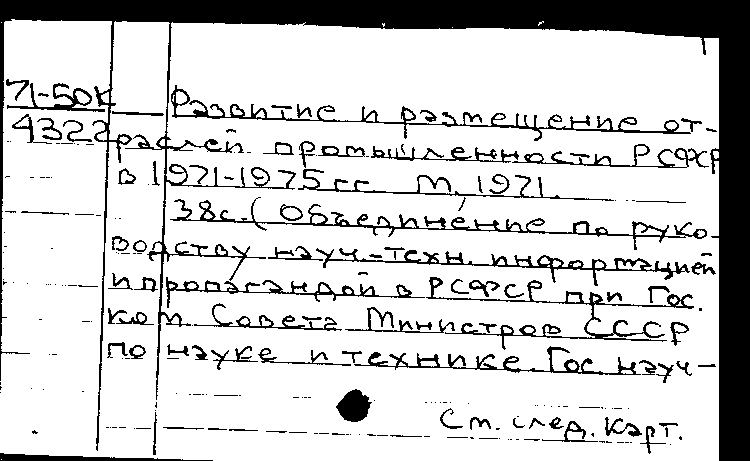 71-50к Развитие и размещение от-
4322 раслей промышленности РСФСР
в 1971-1975 гг. М., 1971.
38с. (Объединение по руко-
водству науч.-техн. информацией
и пропагандой в РСФСР при Гос.
ком. Совета Министров СССР
по науке и технике. Гос. науч-
См. след. карт.